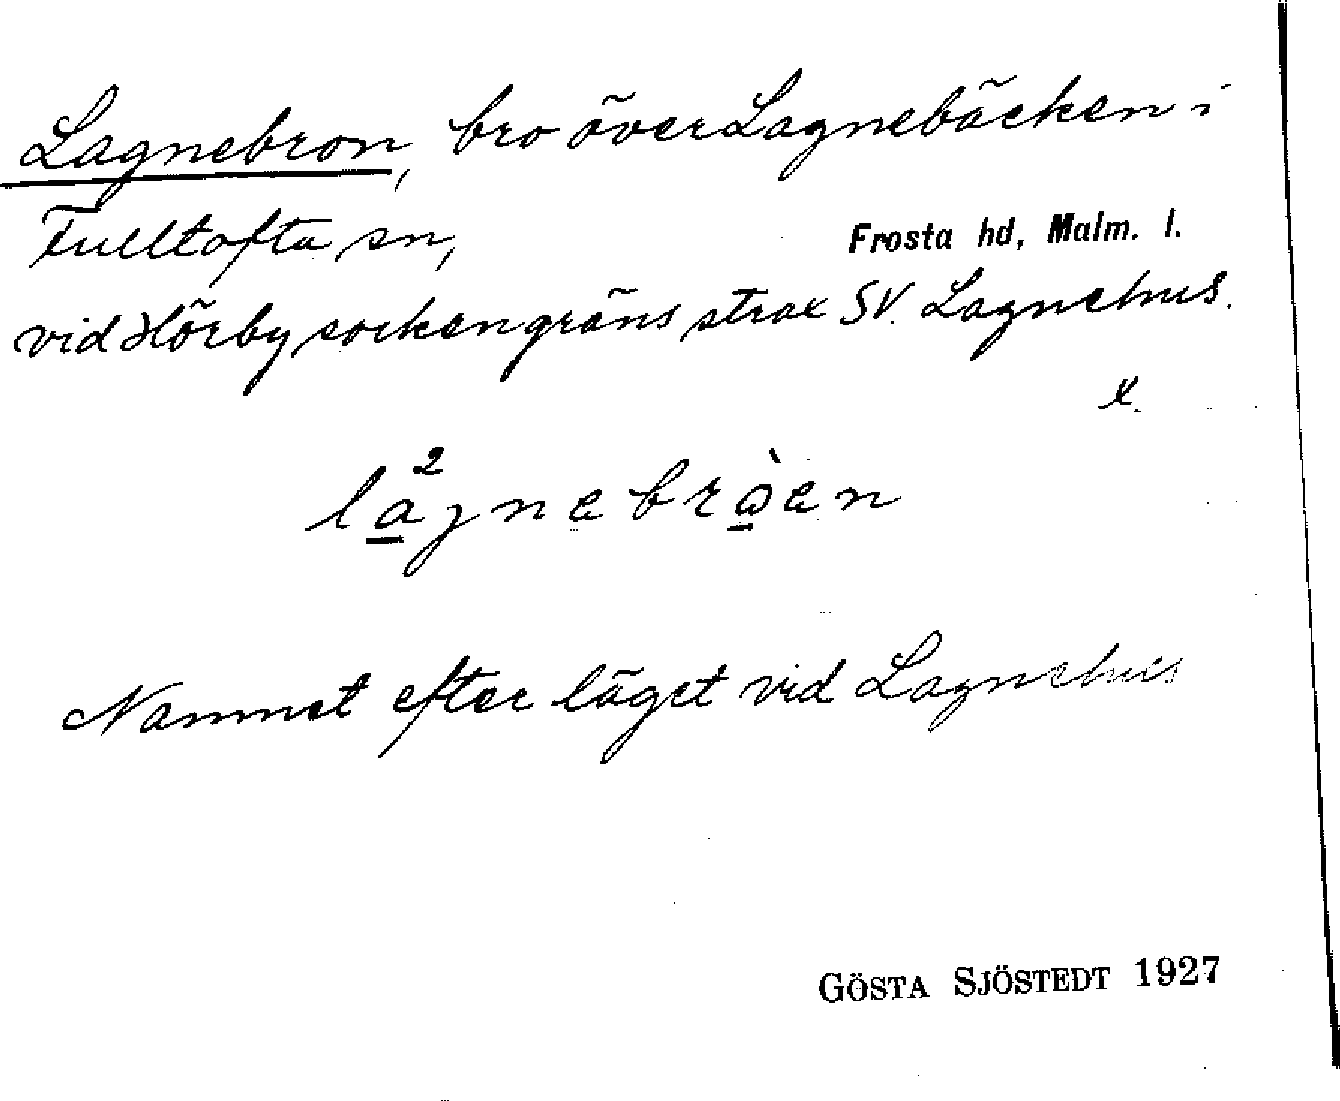 Lagnebron, bro över Lagnebäcken i
Fulltofta sn, Frosta hd, Malm. l.
vid Hörby sockengräns strax SV. Lagnehus.
x.
Namnet efter läget vid Lagnehus
GÖSTA SJÖSTEDT 1927